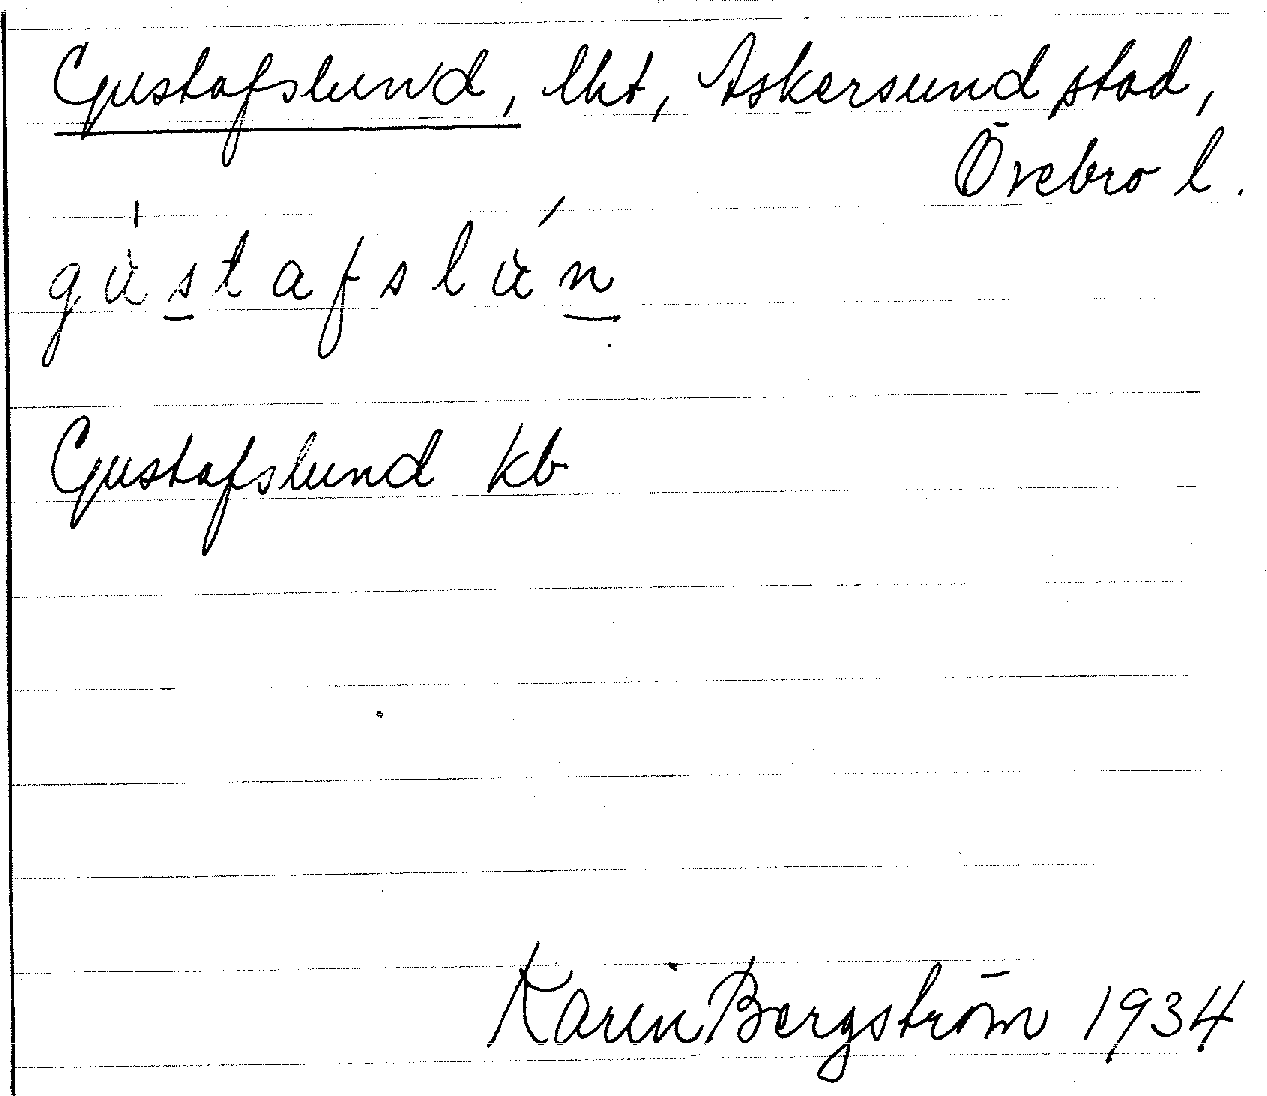 Gustafslund, lht, Askersund stad,
Örebro l.
gùstafslún
Gustafslund kb
Karin Bergström 1934